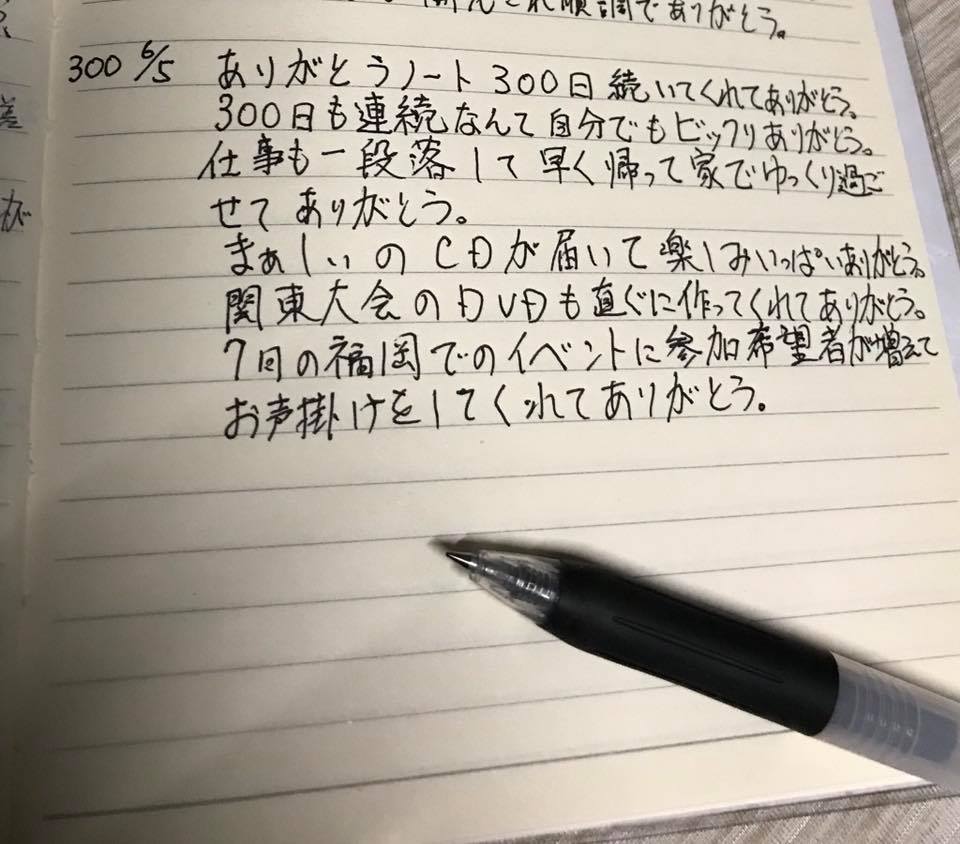 順調でありがとう。
300 6/5 ありがとうノート300日続いてくれてありがとう。
300日も連続なんて自分でもビックリありがとう。
仕事も一段落して早く帰って家でゆっくり過ご
せてありがとう。
まぁしぃのCDが届いて楽しみいっぱいありがとう。
関東大会のDVDも直ぐに作ってくれてありがとう。
7日の福岡でのイベントに参加希望者が増えて
お声掛けをしてくれてありがとう。